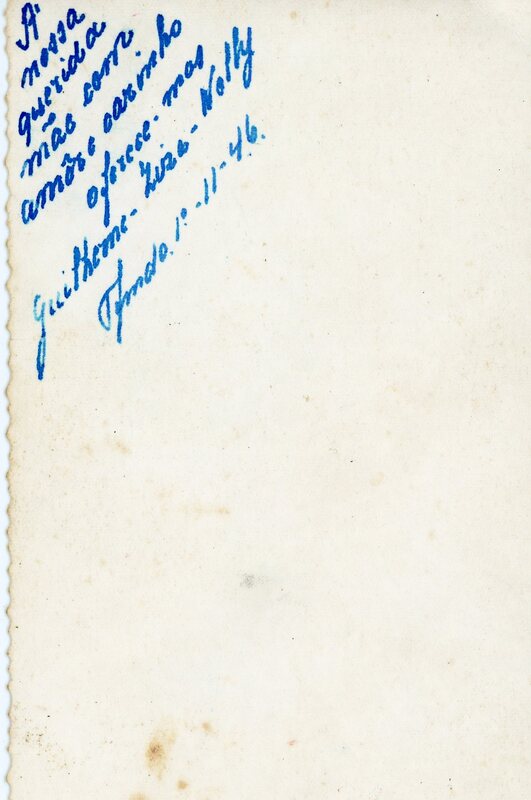 À
nossa
querida
mãe com
amôr e carinho
oferece-mos
Guilherme - Luiza - Nolly
1º-11-46.